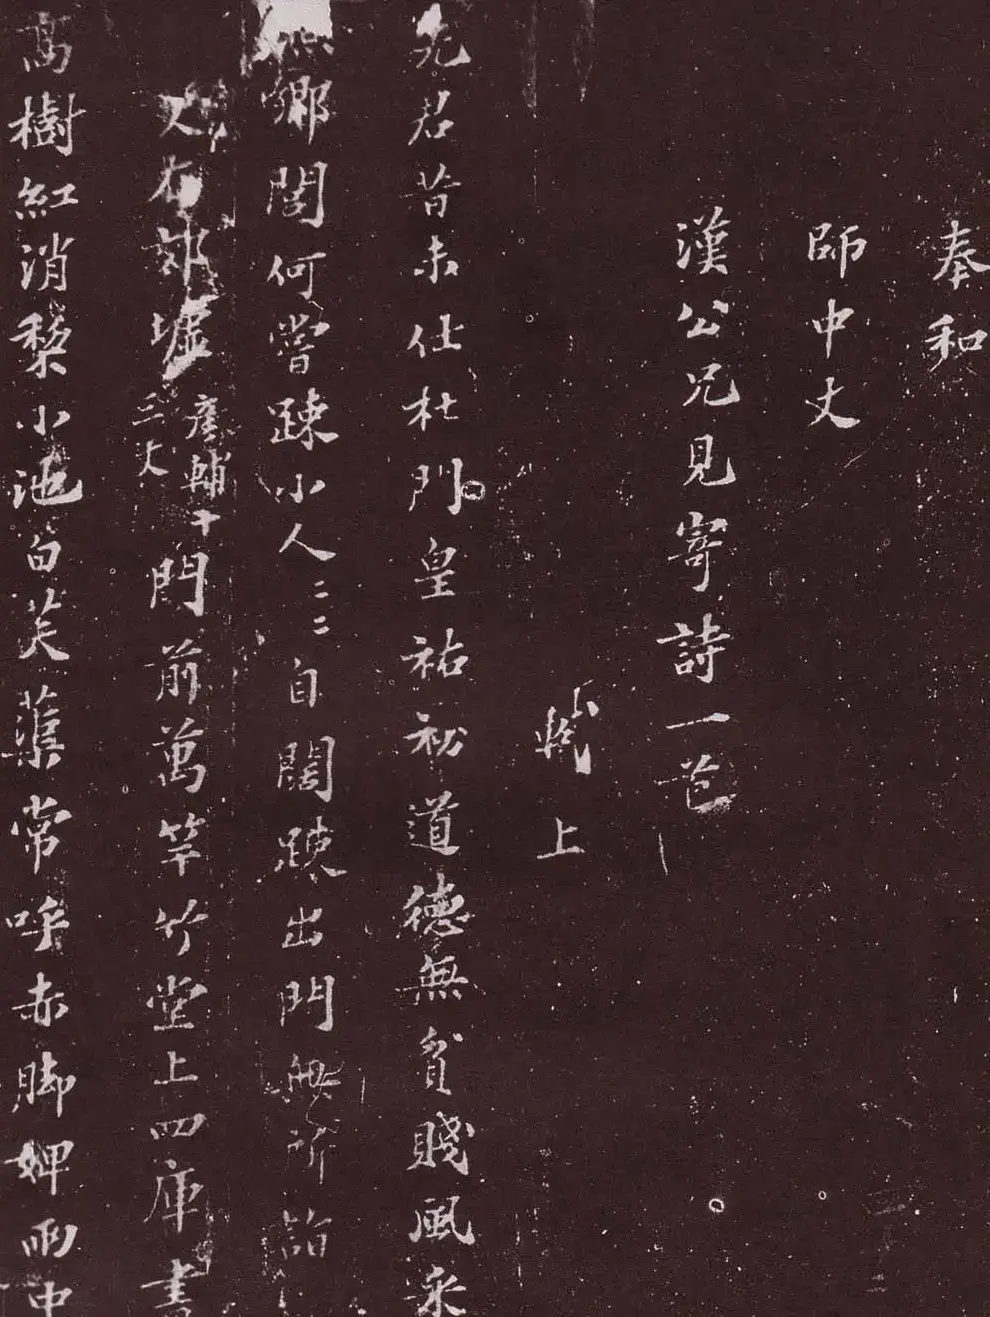 奉和
師中丈
漢公兄見寄詩一首
軾上
先君昔未仕杜門皇祐初道德無貧賤風采
鄉閭何嘗疎小人二二自闊疎出門無所詣
丈在郊墟彥輔十三丈門前萬竿竹堂上四庫書
高樹紅消棃小池白芙蕖常呼赤脚婢雨中